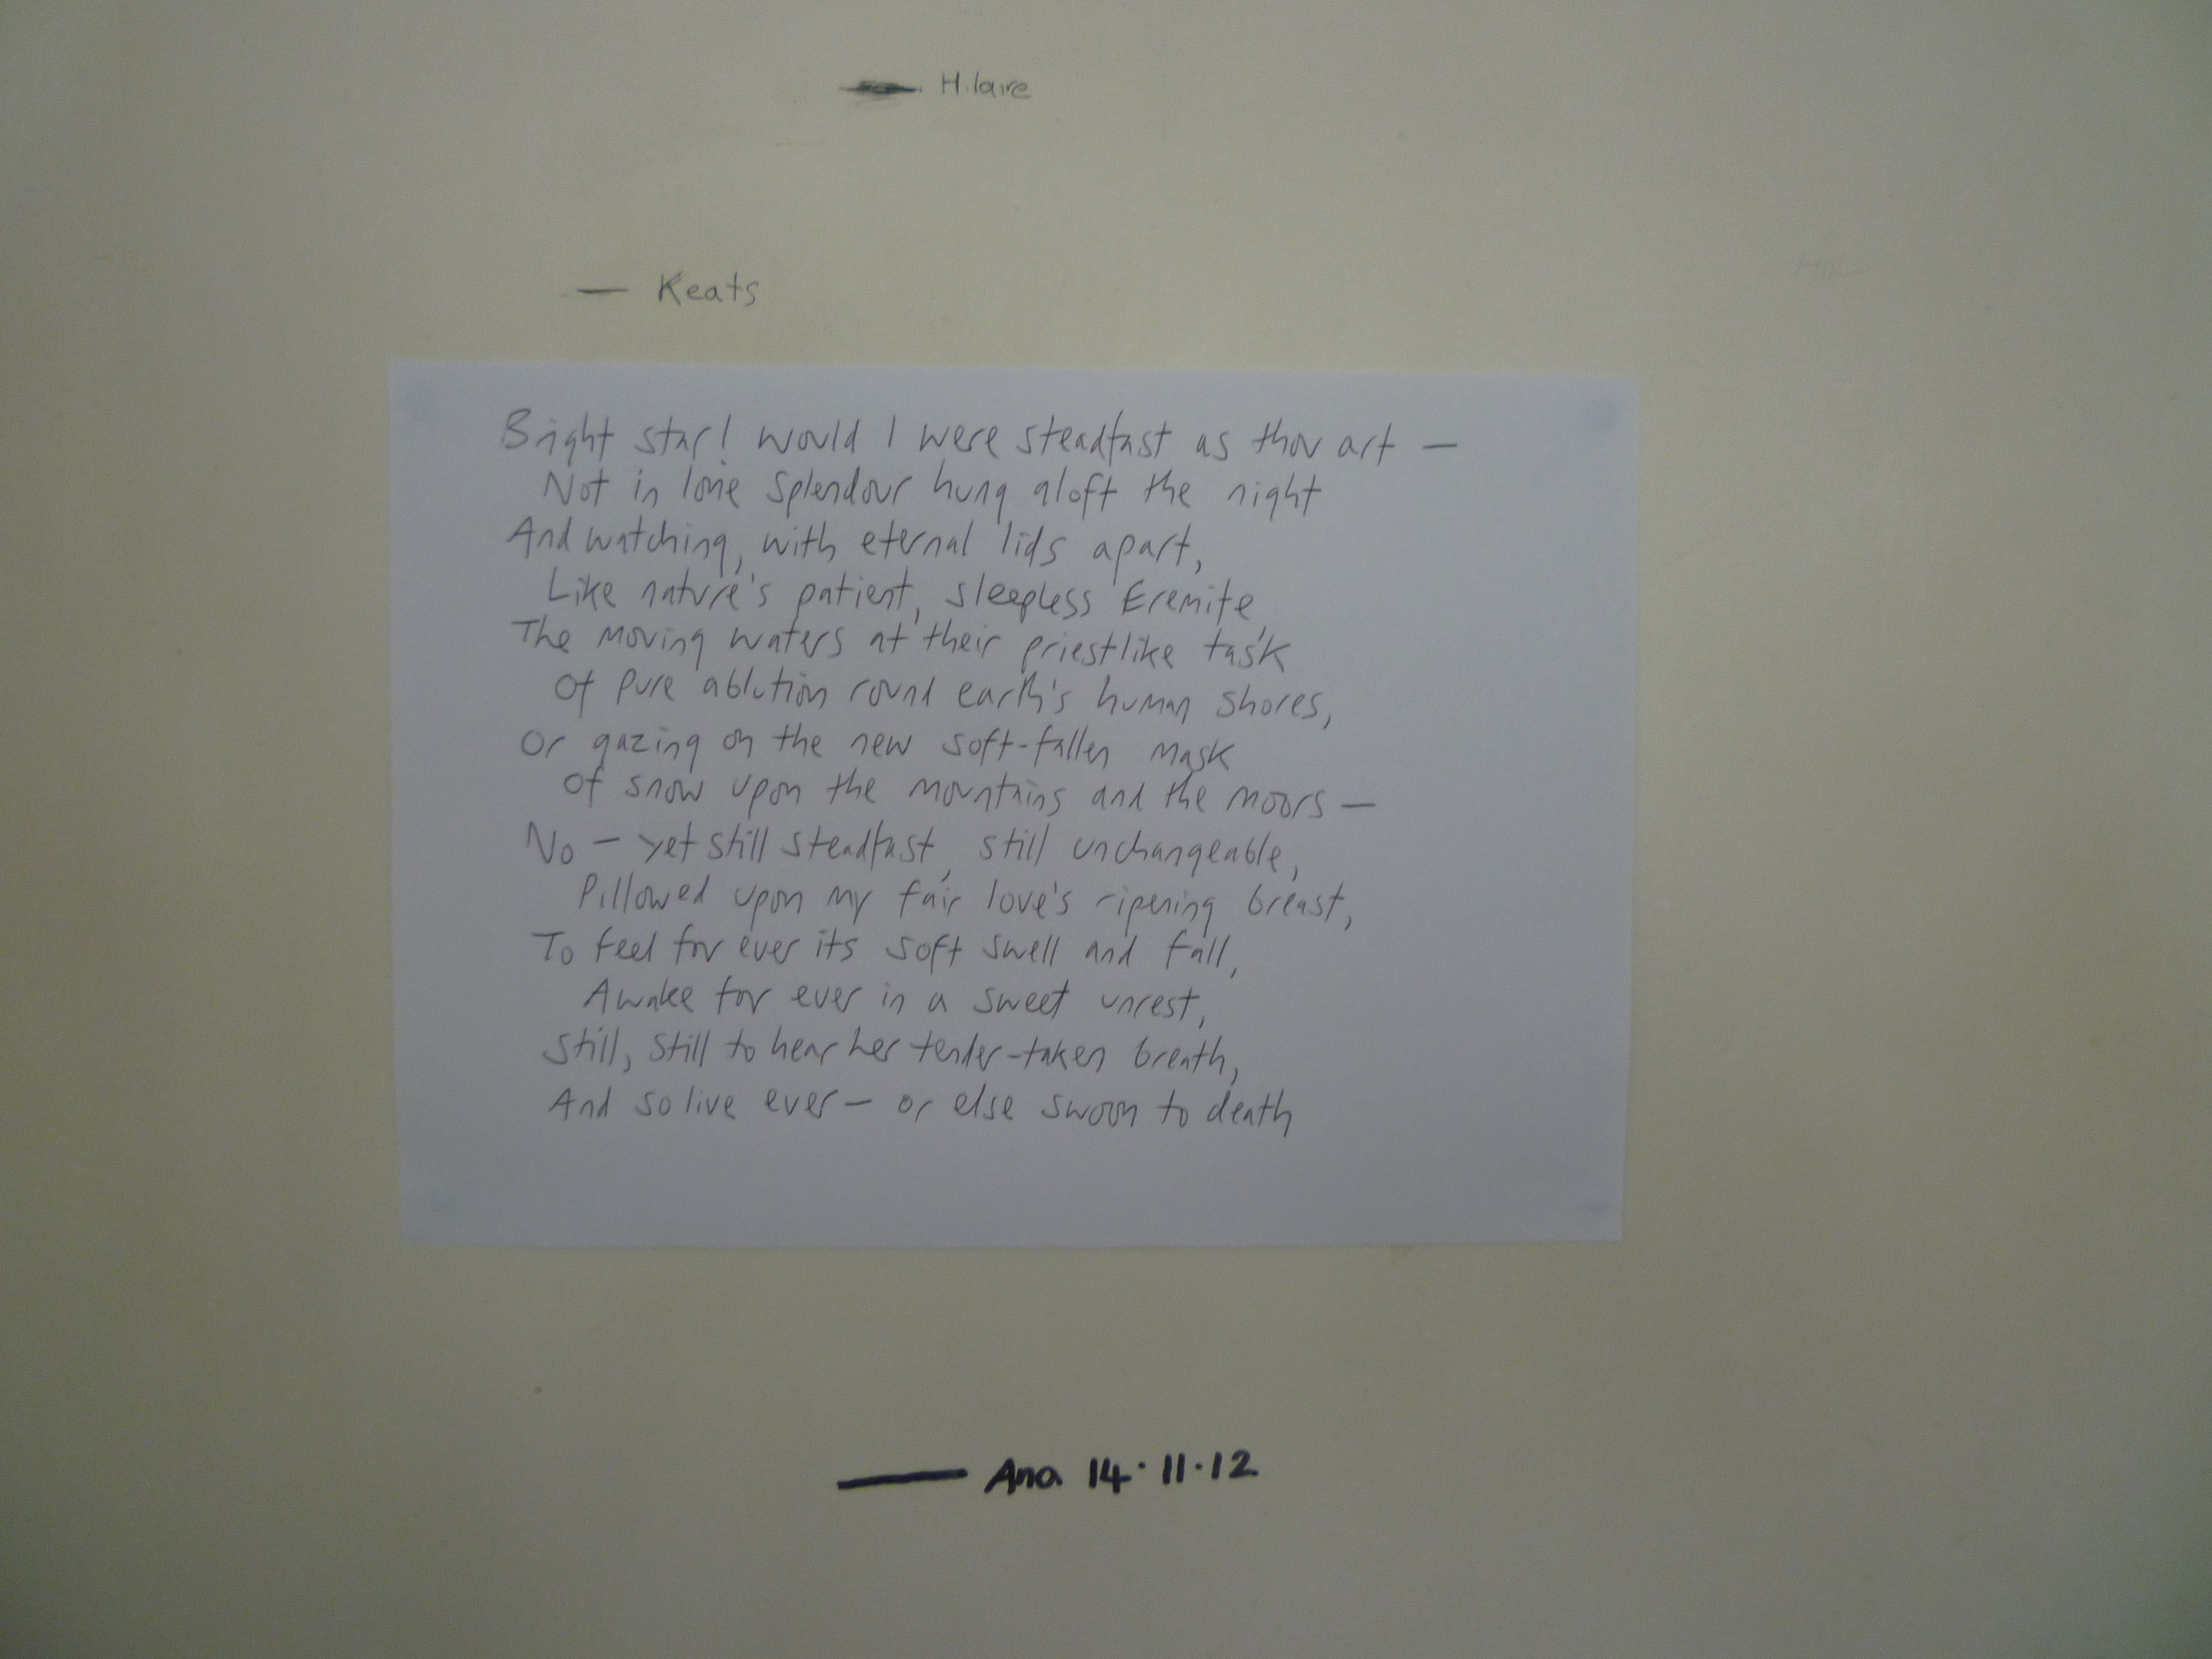 — Hilaire
— Keats
Bright star! would I were steadfast as thou art —
Not in lone splendour hung aloft the night
And watching, with eternal lids apart,
Like nature's patient, sleepless Eremite,
The moving waters at their priestlike task
Of pure ablution round earth's human shores,
Or gazing on the new soft-fallen mask
Of snow upon the mountains and the moors —
No — yet still steadfast, still unchangeable,
Pillowed upon my fair love's ripening breast,
To feel for ever its soft swell and fall,
Awake for ever in a sweet unrest,
Still, still to hear her tender-taken breath,
And so live ever — or else swoon to death
— Ana 14·11·12